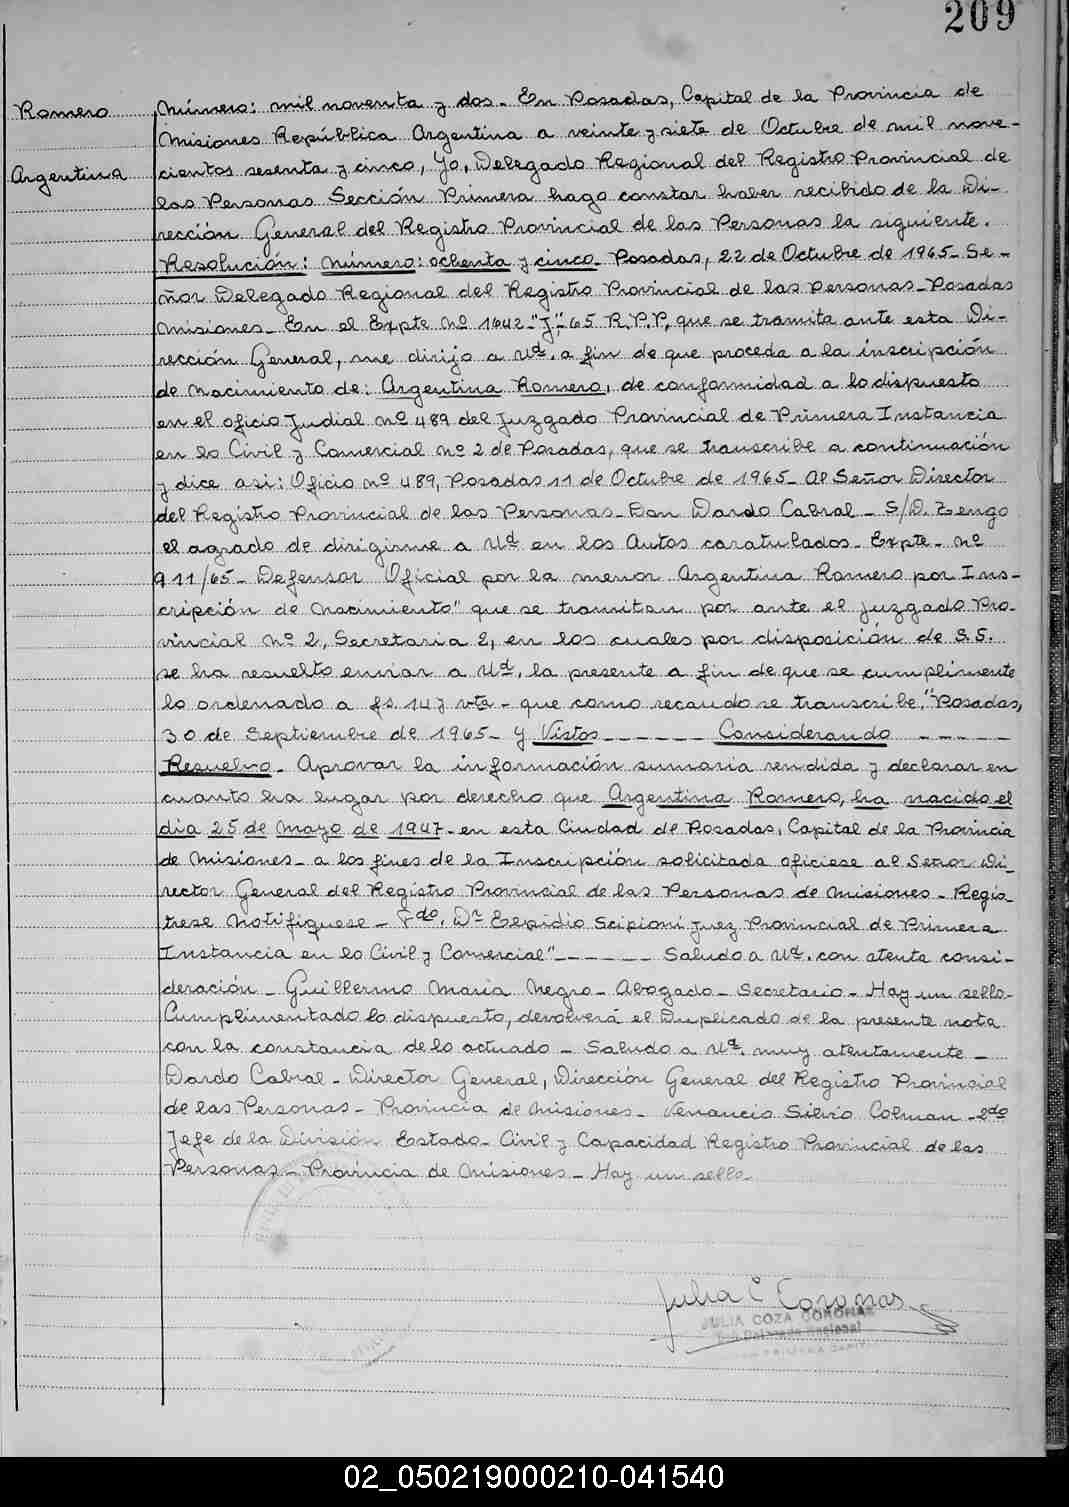 209
Romero
Argentina
Número: mil noventa y dos - En Posadas, Capital de la Provincia de
Misiones República Argentina a veinte y siete de Octubre de mil nove-
cientos sesenta y cinco, Yo, Delegado Regional del Registro Provincial de
las Personas Sección Primera hago constar haber recibido de la Di-
rección General del Registro Provincial de las Personas la siguiente.
Resolución: número: ochenta y cinco - Posadas, 22 de Octubre de 1965 - Se-
ñor Delegado Regional del Registro Provincial de las Personas - Posadas
Misiones - En el Expte nº 1642 - "J" - 65 R.P.P, que se tramita ante esta Di-
rección General, me dirijo a Ud. a fin de que proceda a la inscripción
de nacimiento de: Argentina Romero, de conformidad a lo dispuesto
en el oficio Judial nº 489 del Juzgado Provincial de Primera Instancia
en lo Civil y Comercial nº 2 de Posadas, que se transcribe a continuación
y dice asi: Oficio nº 489, Posadas 11 de Octubre de 1965 - Al Señor Director
del Registro Provincial de las Personas - Don Dardo Cabral - S/D. Tengo
el agrado de dirigirme a Ud en los Autos caratulados - Expte - nº
911/65 - Defensor Oficial por la menor Argentina Romero por Ins-
cripción de Nacimiento" que se tramitan por ante el Juzgado Pro-
vincial nº 2, Secretaria 2, en los cuales por disposición de S.S.
se ha resuelto enviar a Ud, la presente a fin de que se cumplimente
lo ordenado a fs 14 y vta - que como recaudo se transcribe, "Posadas,
30 de Septiembre de 1965 - y Vistos - - - - - Considerando - - - - -
Resuelvo - Aprovar la información sumaria rendida y declarar en
cuanto ha lugar por derecho que Argentina Romero, ha nacido el
dia 25 de Mayo de 1947 - en esta Ciudad de Posadas, Capital de la Provincia
de Misiones - a los fines de la Inscripción solicitada oficiese al Señor Di-
rector General del Registro Provincial de las Personas de Misiones - Regis-
trese Notifiquese - Fdo. Dr Elpidio Scipioni Juez Provincial de Primera
Instancia en lo Civil y Comercial" - - - - - Saludo a Ud. con atenta consi-
deración - Guillermo Maria Negro - Abogado - Secretario - Hay un sello -
Cumplimentado lo dispuesto, devolverá el Duplicado de la presente nota
con la constancia de lo actuado - Saludo a Ud. muy atentamente -
Dardo Cabral - Director General, Dirección General del Registro Provincial
de las Personas - Provincia de Misiones - Venancio Silvio Colman - 2do
Jefe de la División Estado - Civil y Capacidad Registro Provincial de las
Personas - Provincia de Misiones - Hay un sello -
Julia C Coronas
JULIA COZA CORONAS
02_050219000210-041540